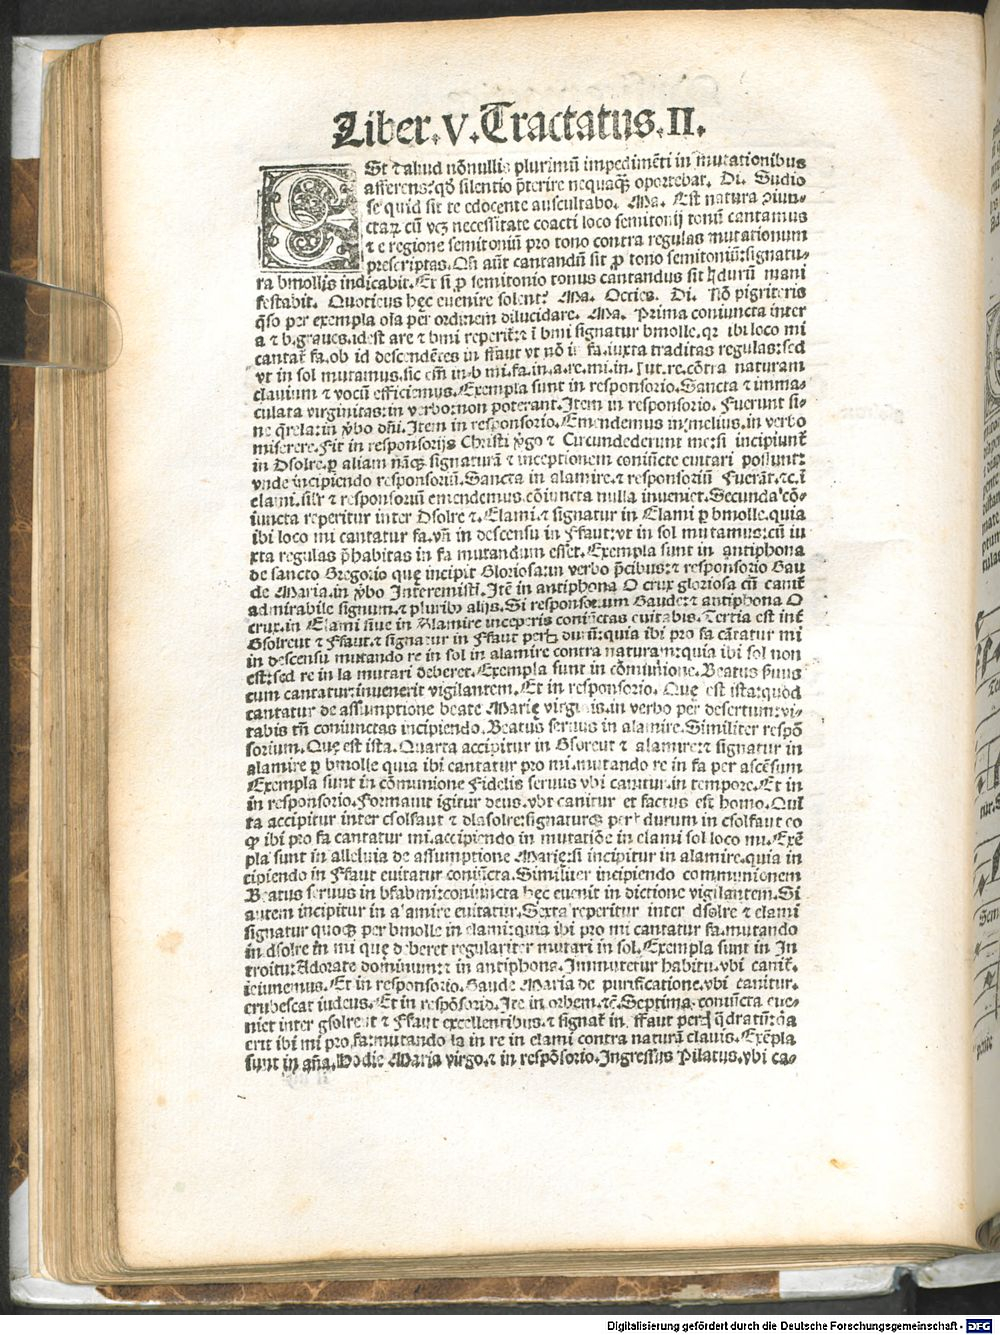 Liber.V.Tractatus.II.
ESt ⁊ aliud nōnullis plurimū impedimēti in mutationibus
afferens:qđ silentio p̄terire nequaꝙ̄ oportebat. Di. Studio
se quid sit te edocente auscultabo. Ma. Est natura ꝯiun-
ctaꝝ cū vꝫ necessitate coacti loco semitonij tonū cantamus
⁊ e regione semitoniū pro tono contra regulas mutationum
prescriptas. Qñ aūt cantandū sit ꝓ tono semitoniū:signatu-
ra bmollis indicabit. Et si ꝓ semitonio tonus cantandus sit ♮durū mani
festabit. Quoticus hęc euenire solent? Ma. Octies. Di. Nō pigriteris
q̄so per exempla oīa per ordinem dilucidare. Ma. Prima coniuncta inter
a ⁊ b.graues.idest are ⁊ bmi reperit̄:⁊ ī bmi signatur bmolle.qꝛ ibi loco mi
cantat̄ fa.ob id descendētes in ffaut vt nō in fa.iuxta traditas regulas:sed
vt in sol mutamus.sic em̄ in b mi.fa.in.a.re.mi.in.Γut.re.cōtra naturam
clauium ⁊ vocū efficiemus. Exempla sunt in responsorio.Sancta ⁊ imma-
culata virginitas:in verbo:non poterant.Item in responsorio. Fuerunt si-
ne q̄rela:in ꝟbo dñi.Item in responsorio.Emendemus in melius.in verbo
miserere.Fit in responsorijs Christi ꝟgo ⁊ Circumdederunt me:si incipiunt̄
in Dsolre.ꝑ aliam nāꝙ signaturā ⁊ inceptionem coniūcte euitari possunt:
vnde incipiendo responsoriū.Sancta in alamire.⁊ responsoriū Fuerāt.⁊c.ī
elami.silr̄ ⁊ responsoriū emendemus.cōiuncta nulla inueniet.Secunda cō-
iuncta reperitur inter Dsolre ⁊.Elami.⁊ signatur in Elami ꝑ bmolle.quia
ibi loco mi cantatur fa.vñ in descensu in Ffaut:vt in sol mutamus:cū iu
xta regulas p̄habitas in fa mutandum esset. Exempla sunt in antiphona
de sancto Gregorio quę incipit Gloriosa:in verbo p̄cibus:⁊ responsorio Gau
de Maria.in ꝟbo Interemisti. Itē in antiphona O crux gloriosa cū canit̄
admirabile signum.⁊ pluribꝰ alijs. Si responsorium Gaude:⁊ antiphona O
crux.in Elami siue in Alamire inceperis coniūctas euitabis. Tertia est int̄
Gsolreut ⁊ Ffaut.⁊ signatur in Ffaut per♮ durū:quia ibi pro fa cātatur mi
in descensu mutando re in sol in alamire contra naturam:quia ibi sol non
est:sed re in la mutari deberet. Exempla sunt in cōmunione. Beatus seruus
cum cantatur:inuenerit vigilantem. Et in responsorio. Quę est ista:quod
cantatur de assumptione beate Marię virginis.in verbo per desertum:vi-
tabis tñ coniunctas incipiendo. Beatus seruus in alamire.Similiter respō
sorium. Quę est ista. Quarta accipitur in Gsoreut ⁊ alamire:⁊ signatur in
alamire ꝑ bmolle quia ibi cantatur pro mi.mutando re in fa per ascēsum
Exempla sunt in cōmunione Fidelis seruus vbi canitur.in tempore. Et in
in responsorio.Formauit igitur deus.vbi canitur et factus est homo.Quī
ta accipitur inter csolfaut ⁊ dlasolre:signaturꝙ per♮ durum in csolfaut eo
ꝙ ibi pro fa cantatur mi.accipiendo in mutatiōe in elami sol loco mi. Exē
pla sunt in alleluia de assumptione Marię:si incipitur in alamire.quia in
cipiendo in Ffaut euitatur coniūcta. Similiter incipiendo communionem
Beatus seruus in bfabmi:coniuncta hęc euenit in dictione vigilantem.Si
autem incipitur in alamire euitatur.Sexta reperitur inter dsolre ⁊ elami
signatur quoꝙ per bmolle in elami:quia ibi pro mi cantatur fa.mutando
in dsolre in mi quę deberet regulariter mutari in sol. Exempla sunt in In
troitu:Adorate dominum:⁊ in antiphona. Immutetur habitu.vbi canit̄.
ieiunemus. Et in responsorio. Gaude Maria de purificatione.vbi canitur.
erubescat iudeus. Et in respōsorio.Ite in orbem.⁊c̄.Septima coniūcta eue-
niet inter gsolreut ⁊ Ffaut excellentibus.⁊ signat̄ in ffaut per♮ q̄dratū:q̄a
erit ibi mi pro fa:mutando la in re in elami contra naturā clauis. Exēpla
sunt in aña.Hodie Maria virgo.⁊ in respōsorio.Ingressus Pilatus.vbi ca-
Digitalisierung gefördert durch die Deutsche Forschungsgemeinschaft - DFG